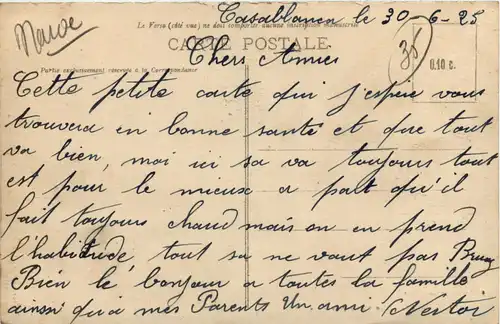 Maroc
Casablanca le 30-6-25
Le Verso (côté vue) ne doit comporter aucune inscription manuscrite
CARTE POSTALE
35
0.10 c.
Partie exclusivement réservée à la Correspondance
Chers Amies
Cette petite carte qui j'espaie vous
trouvera en bonne santé et que tout
va bien, moi ici sa va toujours tout
est pour le mieux a part qu'il
fait toujours chaud mais on en prend
l'habitude tout sa ne vaut pas
Bien le bonjour a toutes la famille
ainssi qu'a mes Parents Un ami Nestor